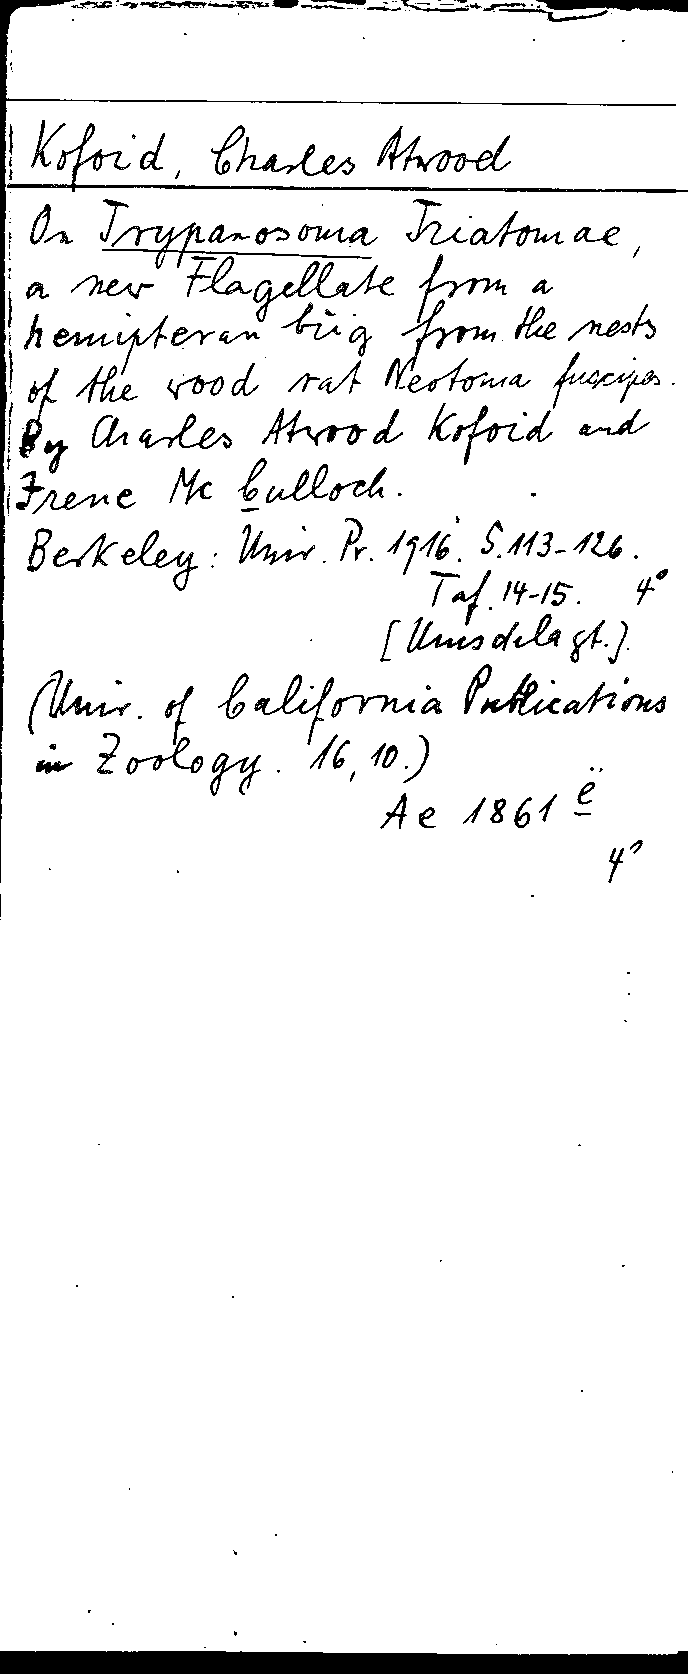 Kofoid, Charles Atwood
On Trypanosoma Triatomae,
a new Flagellate from a
hemipteran bug from the nests
of the wood rat Neotoma fuscipes.
By Charles Atwood Kofoid and
Irene Mc Culloch.
Berkeley: Univ. Pr. 1916. S.113-126.
Taf. 14-15. 4°
[Umsdelagt.]
(Univ. of California Publications
in Zoology. 16, 10.)
Ae 1861 ë
4°